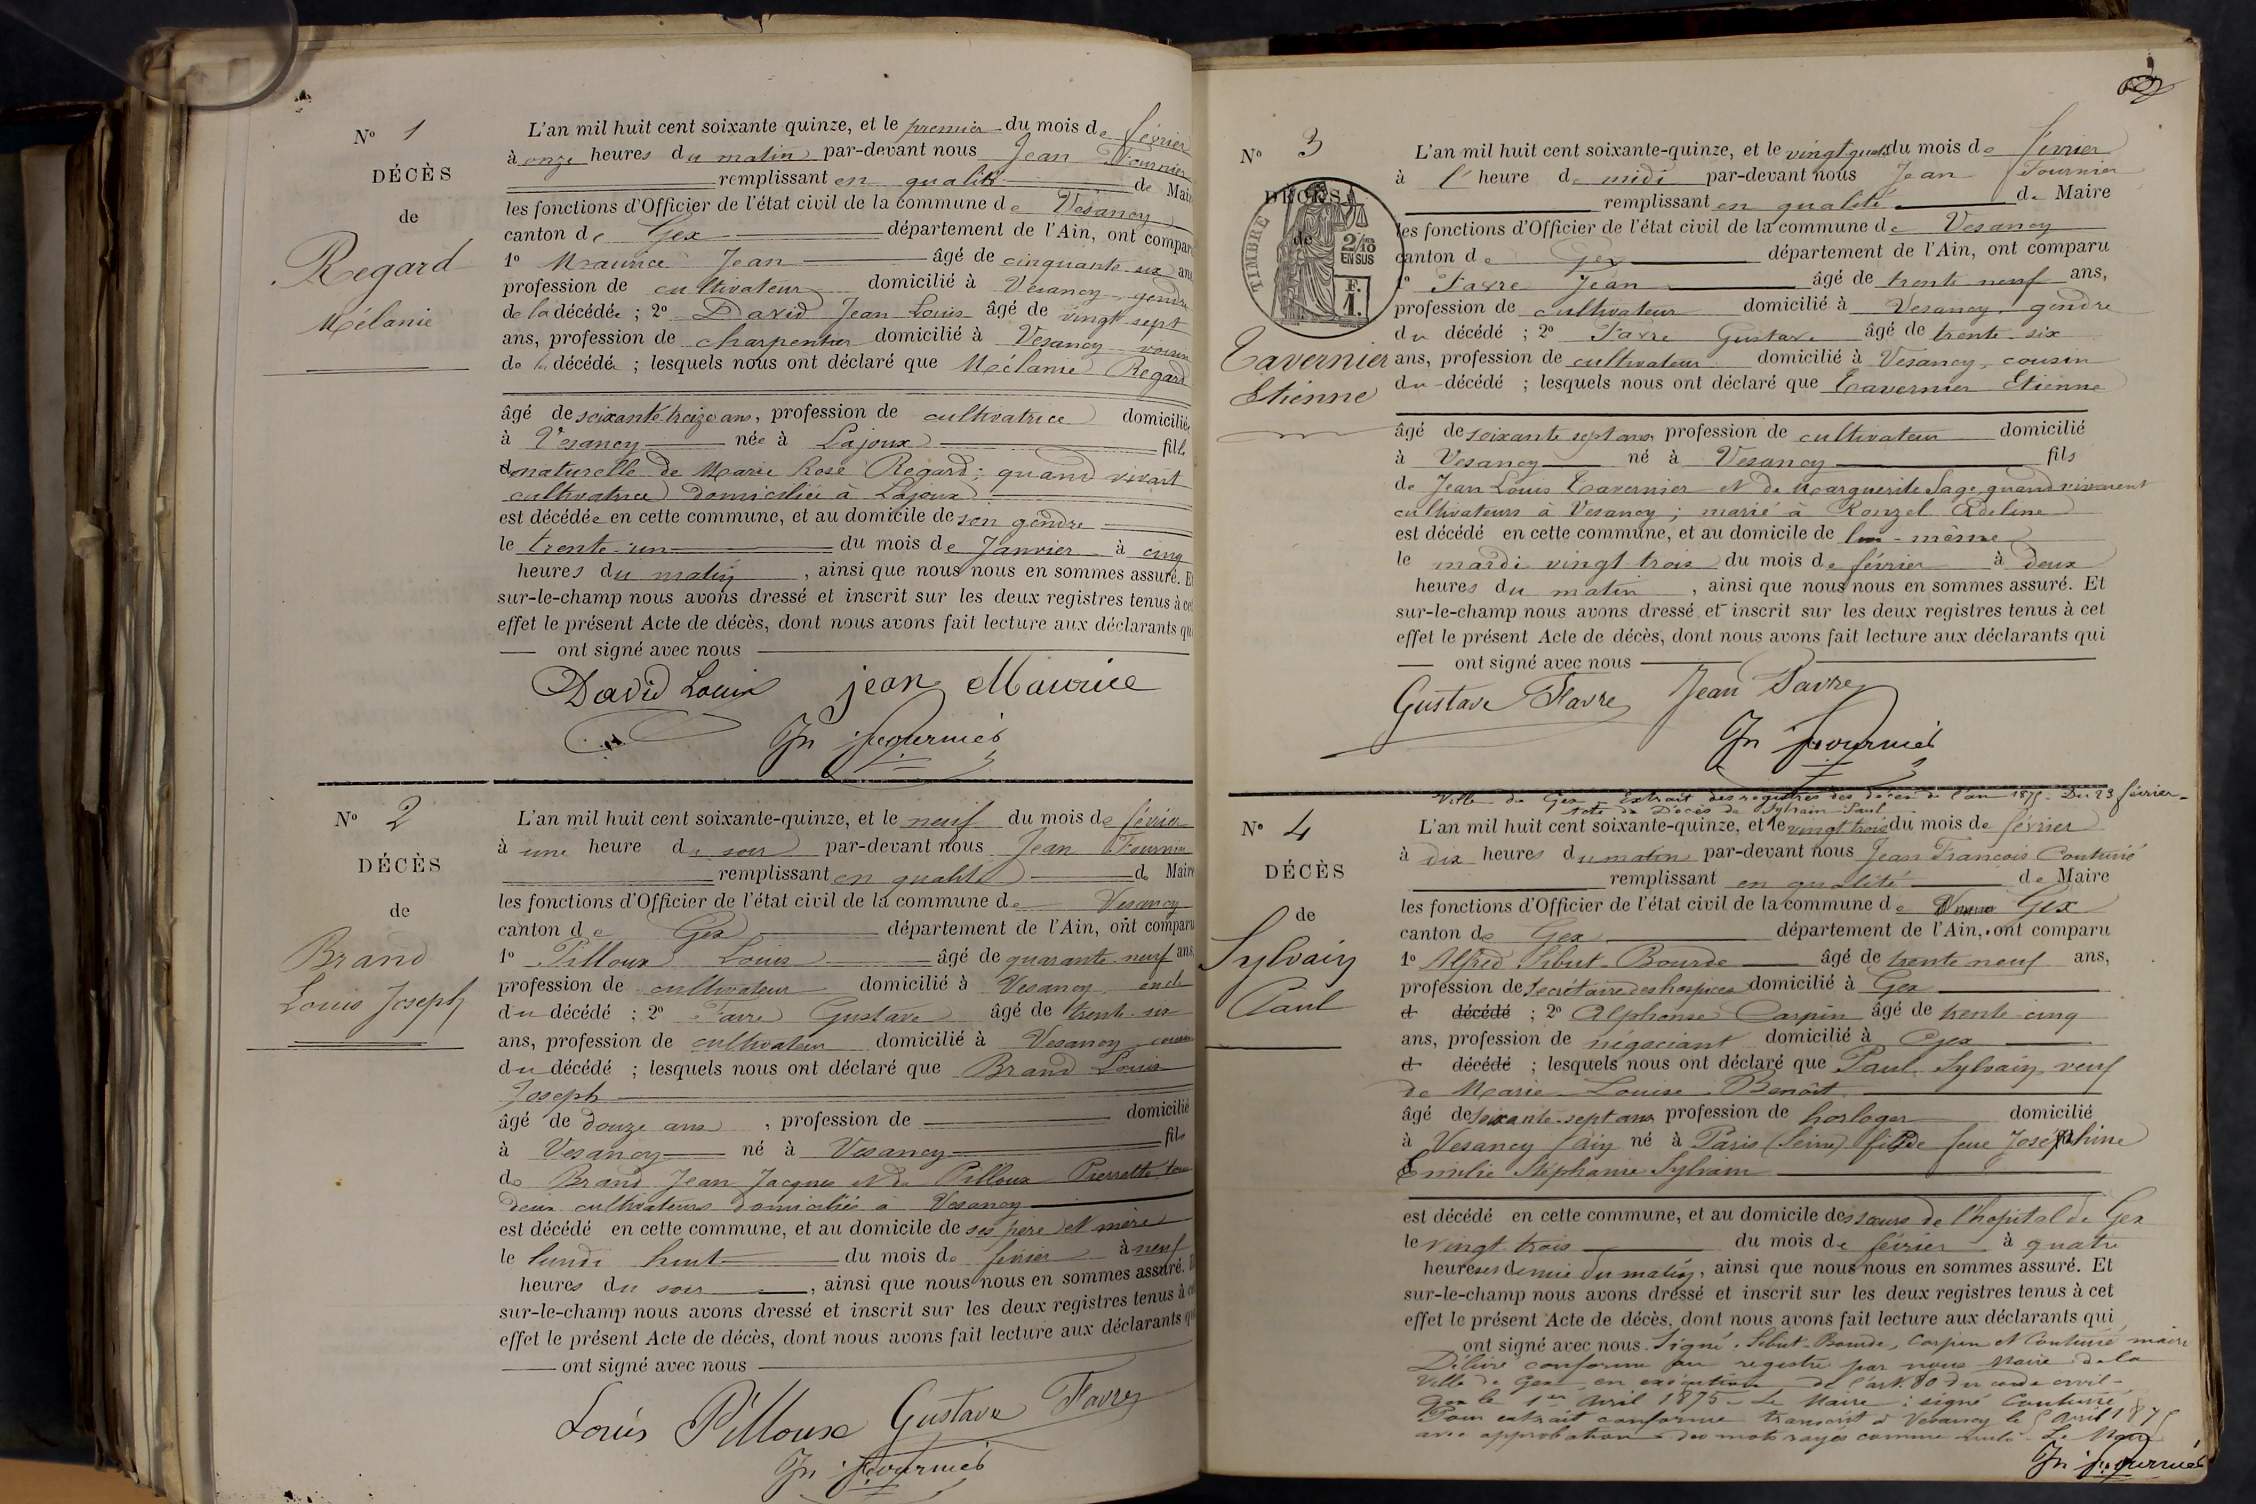 N° 1
DÉCÈS
de
Regard
Mélanie
L'an mil huit cent soixante quinze, et le premier du mois de février
à onze heures du matin par-devant nous Jean Fournier
remplissant en qualité de Maire
les fonctions d'Officier de l'état civil de la commune de Vesancy
canton de Gex département de l'Ain, ont comparu
1° Maurice Jean âgé de cinquante six ans
profession de cultivateur domicilié à Vesancy gendre
de la décédée ; 2° David Jean Louis âgé de vingt sept
ans, profession de charpentier domicilié à Vesancy voisin
de la décédée ; lesquels nous ont déclaré que Mélanie Regard
âgé de soixante treize ans, profession de cultivatrice domiciliée
à Vesancy née à Lajoux fille
naturelle de Marie Rose Regard ; quand vivait
cultivatrice domiciliée à Lajoux
est décédée en cette commune, et au domicile de son gendre
le trente-un du mois de Janvier à cinq
heures du matin, ainsi que nous nous en sommes assuré. Et
sur-le-champ nous avons dressé et inscrit sur les deux registres tenus à cet
effet le présent Acte de décès, dont nous avons fait lecture aux déclarants qui
ont signé avec nous
David Louis jean Maurice
Jn fournier
N° 2
DÉCÈS
de
Brand
Louis Joseph
L'an mil huit cent soixante-quinze, et le neuf du mois de février
à une heure du soir par-devant nous Jean Fournier
remplissant en qualité de Maire
les fonctions d'Officier de l'état civil de la commune de Vesancy
canton de Gex département de l'Ain, ont comparu
1° Pilloux Louis âgé de quarante neuf ans
profession de cultivateur domicilié à Vesancy oncle
du décédé ; 2° Favre Gustave âgé de trente six
ans, profession de cultivateur domicilié à Vesancy cousin
du décédé ; lesquels nous ont déclaré que Brand Louis
Joseph
âgé de douze ans, profession de domicilié
à Vesancy né à Vesancy fils
de Brand Jean Jacques et de Pilloux Pierrette tous
deux cultivateurs domiciliés à Vesancy
est décédé en cette commune, et au domicile de ses père et mère
le lundi huit du mois de février à neuf
heures du soir, ainsi que nous nous en sommes assuré. Et
sur-le-champ nous avons dressé et inscrit sur les deux registres tenus à cet
effet le présent Acte de décès, dont nous avons fait lecture aux déclarants qui
ont signé avec nous
Louis Pilloux Gustave Favre
Jn fournier
N° 3
DÉCÈS
de
TIMBRE
2/10 EN SUS
F. 1.
Tavernier
Etienne
L'an mil huit cent soixante-quinze, et le vingt quatre du mois de février
à l' heure de midi par-devant nous Jean Fournier
remplissant en qualité de Maire
les fonctions d'Officier de l'état civil de la commune de Vesancy
canton de Gex département de l'Ain, ont comparu
1° Favre Jean âgé de trente neuf ans,
profession de cultivateur domicilié à Vesancy gendre
du décédé ; 2° Favre Gustave âgé de trente-six
ans, profession de cultivateur domicilié à Vesancy, cousin
du décédé ; lesquels nous ont déclaré que Tavernier Etienne
âgé de soixante sept ans, profession de cultivateur domicilié
à Vesancy né à Vesancy fils
de Jean Louis Tavernier et de Marguerite Sage quand vivaient
cultivateurs à Vesancy ; marié à Ronzel Adeline
est décédé en cette commune, et au domicile de lui-même
le mardi vingt trois du mois de février à deux
heures du matin, ainsi que nous nous en sommes assuré. Et
sur-le-champ nous avons dressé et inscrit sur les deux registres tenus à cet
effet le présent Acte de décès, dont nous avons fait lecture aux déclarants qui
ont signé avec nous
Gustave Favre Jean Favre
Jn fournier
N° 4
DÉCÈS
de
Sylvain
Paul
Ville de Gex Extrait des registres des décès de l'an 1875. Du 23 février.
Acte de Décès de Sylvain Paul
L'an mil huit cent soixante-quinze, et le vingt trois du mois de février
à dix heures du matin par-devant nous Jean François Couturié
remplissant en qualité de Maire
les fonctions d'Officier de l'état civil de la commune de Gex
canton de Gex département de l'Ain, ont comparu
1° Alfred Sibut-Bourde âgé de trente neuf ans,
profession de Secrétaire des hospices domicilié à Gex
d décédé ; 2° Alphonse Carpin âgé de trente cinq
ans, profession de négociant domicilié à Gex
d décédé ; lesquels nous ont déclaré que Paul Sylvain veuf
de Marie Louise Benoît
âgé de soixante-sept ans profession de horloger domicilié
à Vesancy (ain) né à Paris (Seine) fils de feue Joséphine
Emilie Stéphanie Sylvain
est décédé en cette commune, et au domicile des sœurs de l'hopital de Gex
le vingt trois du mois de février à quatre
heures et demie du matin, ainsi que nous nous en sommes assuré. Et
sur-le-champ nous avons dressé et inscrit sur les deux registres tenus à cet
effet le présent Acte de décès, dont nous avons fait lecture aux déclarants qui
ont signé avec nous. Signé : Sibut-Bourde, Carpin et Couturié maire
Délivré conforme au registre par nous Maire de la
Ville de Gex en exécution de l'art. 80 du code civil.
Gex le 1er avril 1875. Le Maire : signé Couturié
Pour extrait conforme transcrit à Vesancy le 5 avril 1875
avec approbation des mots rayés comme nuls. Le Maire
Jn fournier